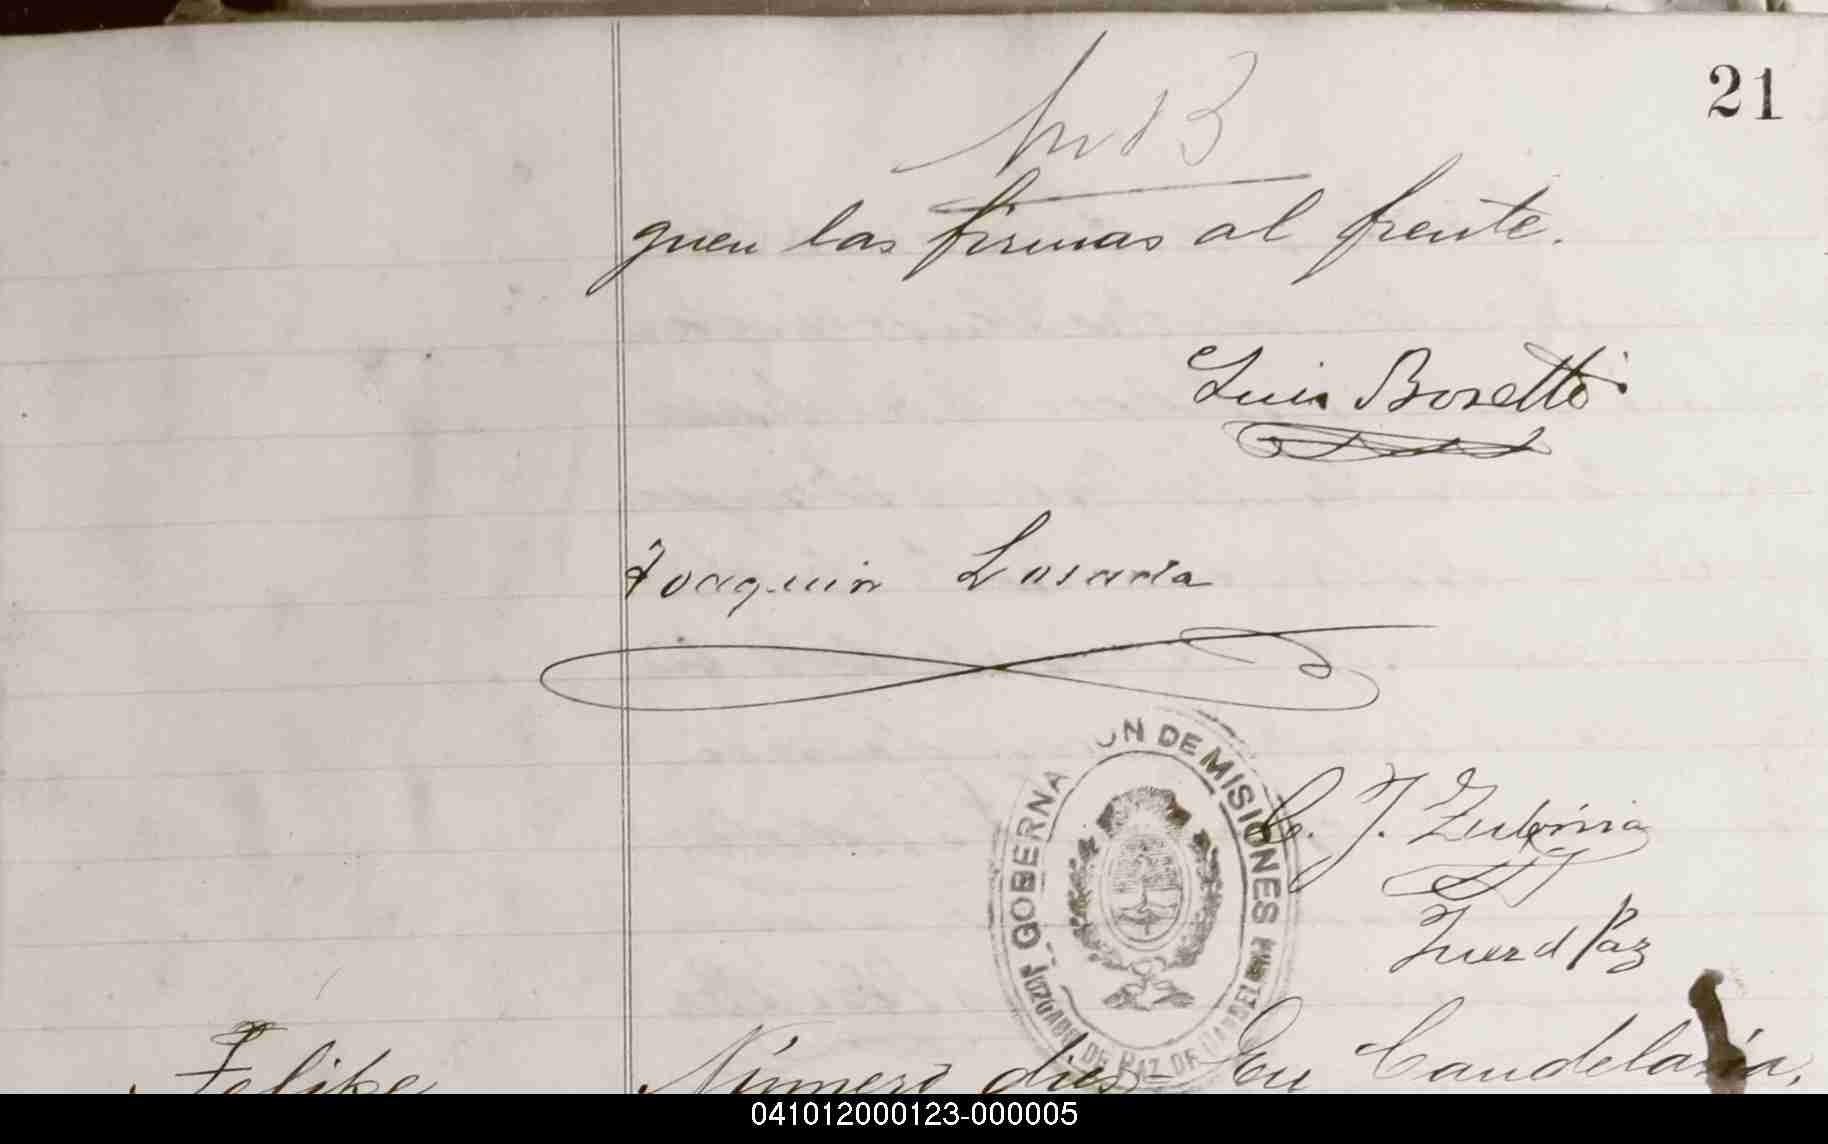 21
guen las firmas al frente.
Luis Bosetto
Joaquin Losada
GOBERNA ON DE MISIONES
JUZGADO DE PAZ DE CANDELARIA
C. J. Zubiria
Juez d Paz
Felipe
Número diez_ En Candelaria,
041012000123-000005